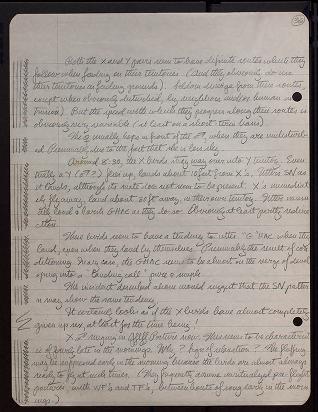 Both the X and Y pairs seem to have definite routes which they
follow when feeding in their territories (and they obviously do use
their territories as feeding grounds). Seldom diverge from these routes,
except when obviously disturbed, by neighbors and/or human in-
trusion). But the speed with which they progress along these routes is
obviously very variable (at least on a short term basis)
The ♀ usually hops in front of the ♂, when they are undisturb-
ed. Presumably due to the fact that she is less shy
Around 8:30, the X birds stray way over into Y territory. Even-
tually a Y (♂?) flies up, lands about 10 feet from X's. Utters SN as
it lands, although its mate does not seem to be present. X's immediate-
ly fly away, land about 30 ft away, in their own territory. Utter
land a harsh GHOC as they do so. Obviously at least partly
These birds seem to have a tendency to utter "G" HOC when they
land, even when they land by themselves. Presumably the result of con-
ditioning. In any case, the GHOC seems to be almost on the verge of devel-
oping into a "landing call" pure & simple
The incident described above would suggest that the SN pattern
may show the same tendency.
It certainly looks as if the X birds have almost completely
given up sex, at least for the time being!
X ♂ singing in Posture now. These seem to be characteris-
tic of early, late in the mornings. Why? Hype of relaxation? The fluffing
may be suppressed early in the morning because the birds are almost always
ready to fly at such times. (They frequently assume unritualized pre-flight
postures with VF's and TF's, between bouts of song early in the morn-
ings.)